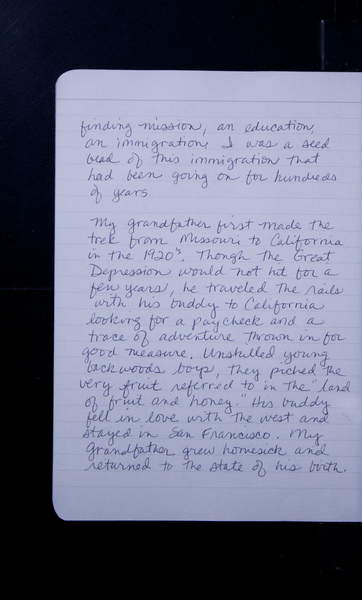 finding mission, an education,
an immigration. I was a seed
bead of this immigration that
had been going on for hundreds
of years.
My grandfather first made the
trek from Missouri to California
in the 1920's. Though the Great
Depression would not hit for a
few years, he traveled the rails
with his buddy to California
looking for a paycheck and a
trace of adventure thrown in for
good measure. Unskilled young
backwoods boys, they picked the
very fruit referred to in the "land
of fruit and honey." His buddy
fell in love with the west and
stayed in San Francisco. My
Grandfather grew homesick and
returned to the state of his birth.